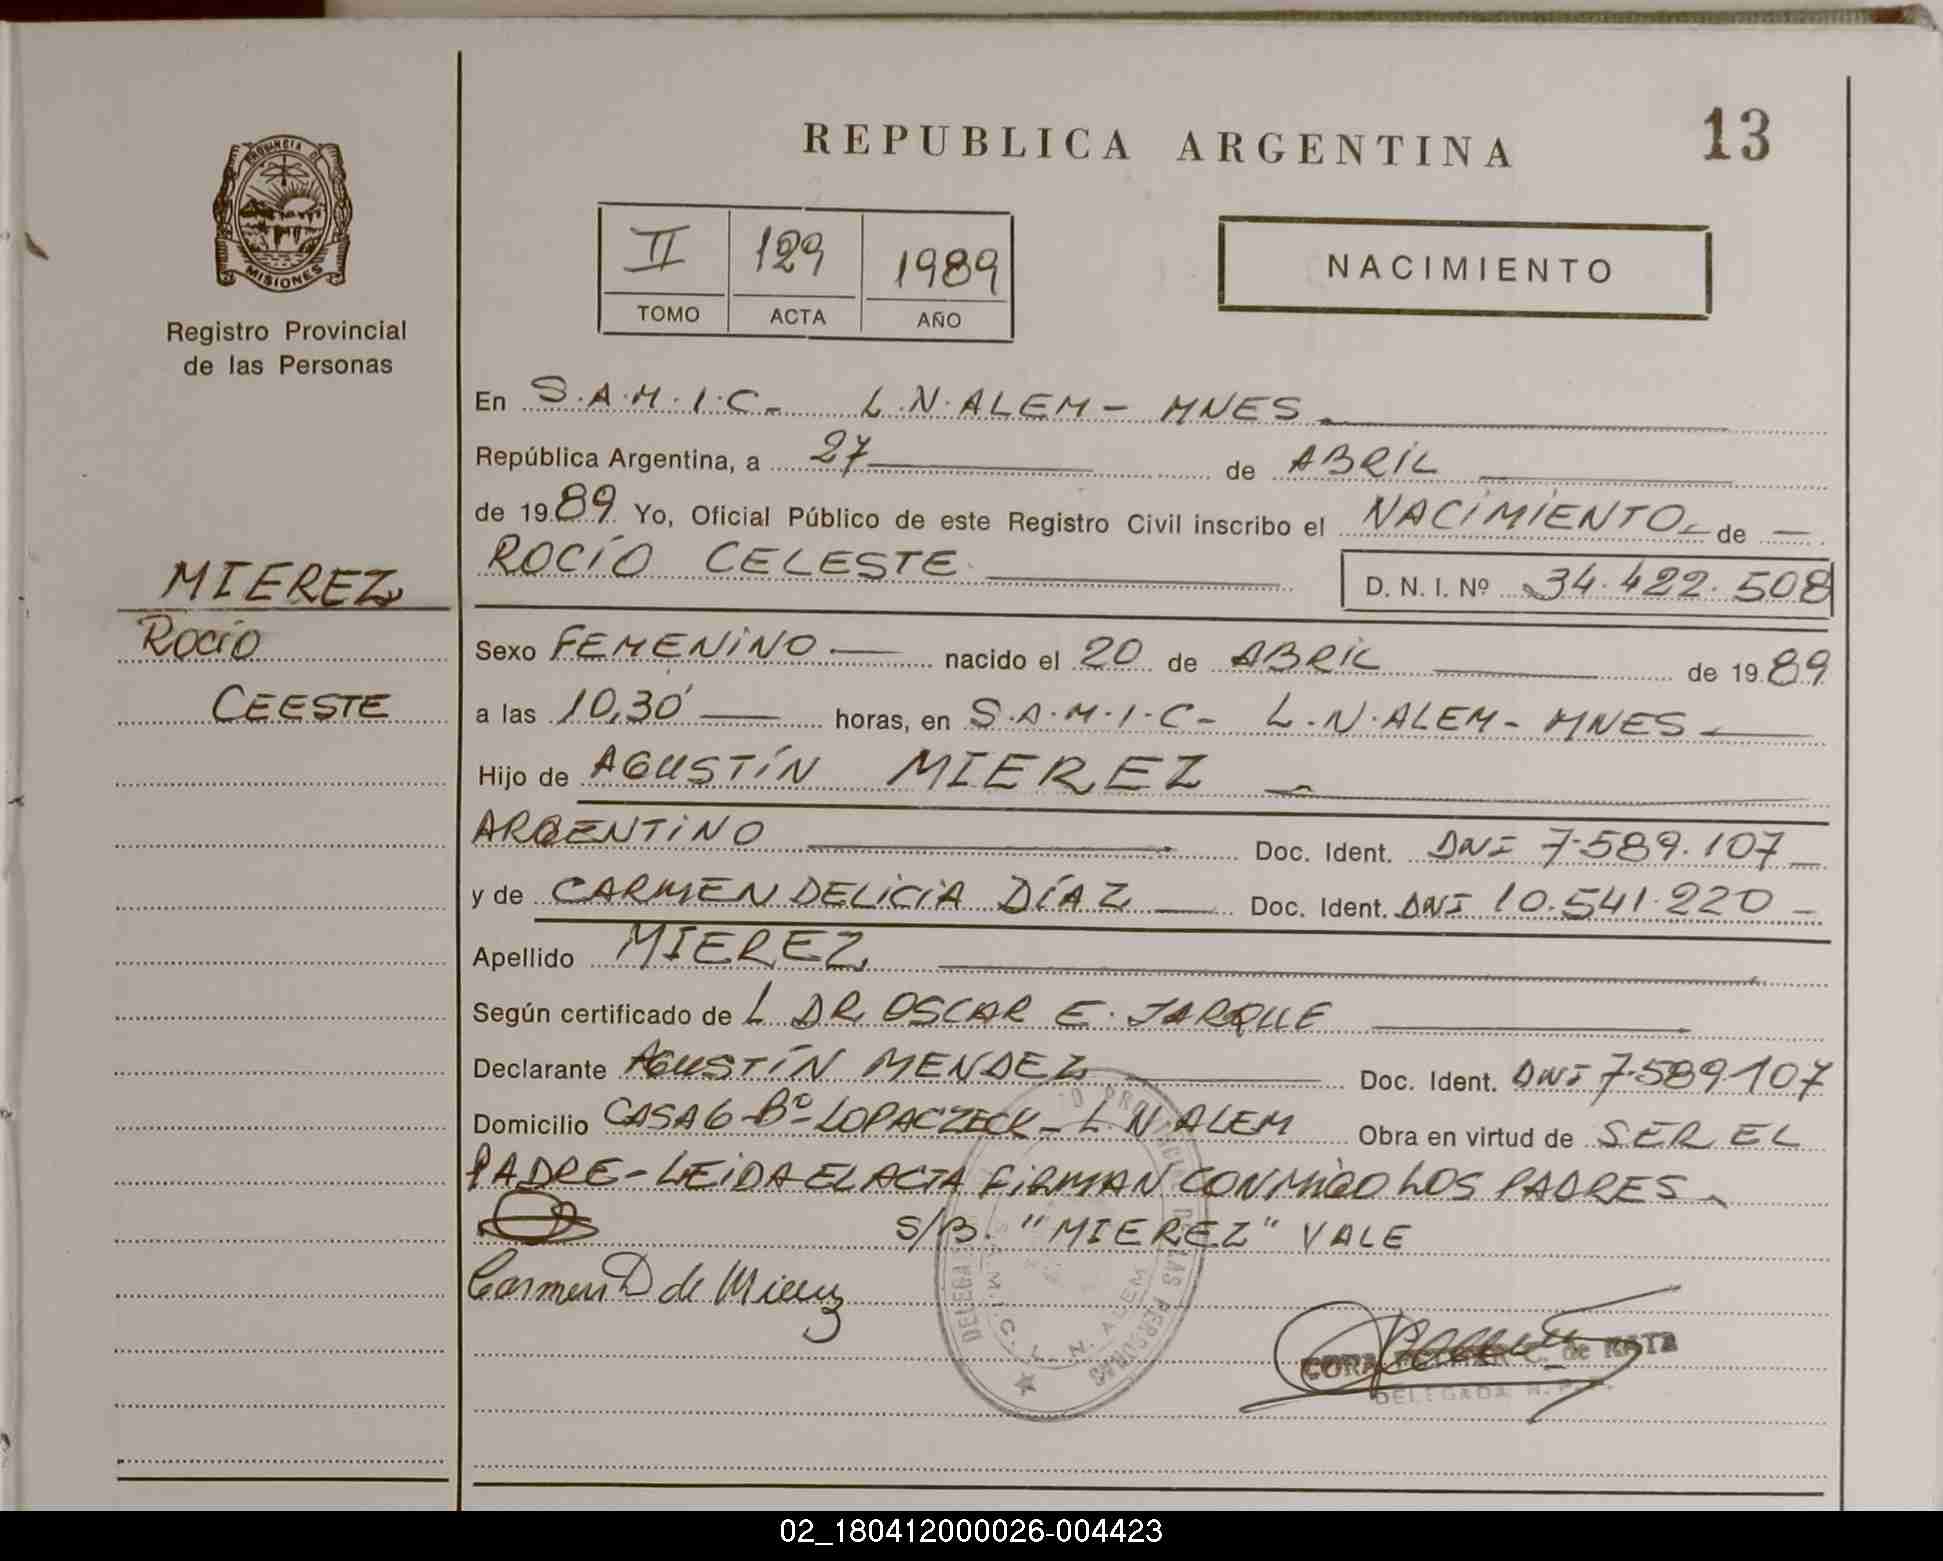 PROVINCIA DE
MISIONES
Registro Provincial
de las Personas
MIEREZ
ROCÍO
CEESTE
REPUBLICA ARGENTINA
13
II 129 1989
TOMO ACTA AÑO
NACIMIENTO
En S.A.M.I.C- L.N.ALEM - MNES
República Argentina, a 27 de ABRIL
de 1989 Yo, Oficial Público de este Registro Civil inscribo el NACIMIENTO de —
ROCÍO CELESTE D. N. I. Nº 34.422.508
Sexo FEMENINO — nacido el 20 de ABRIL de 1989
a las 10,30 — horas, en S.A.M.I.C- L.N.ALEM- MNES
Hijo de AGUSTÍN MIEREZ
ARGENTINO Doc. Ident. DNI 7.589.107
y de CARMEN DELICIA DÍAZ — Doc. Ident. DNI 10.541.220 -
Apellido MIEREZ
Según certificado de L DR OSCAR E. JARQUE
Declarante AGUSTÍN MENDEZ Doc. Ident. DNI 7.589.107
Domicilio CASA 6 - Bº LOPACZECK - L N ALEM Obra en virtud de SER EL
PADRE - LEIDA EL ACTA FIRMAN CONMIGO LOS PADRES
S/B. "MIEREZ" VALE
Carmen D de Mierez
DELEGA S.A.M.I.C. L. N. ALEM
PROVINCIAL DE LAS PERSONAS
C. de KATA
DELEGADA R. P. P.
02_180412000026-004423